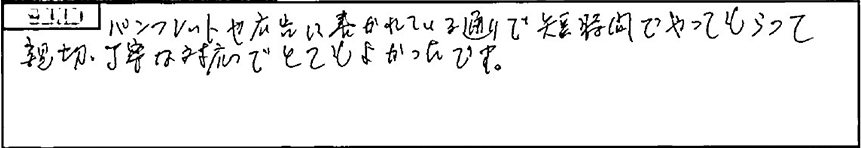 パンフレットや広告に書かれている通りで短時間でやってもらって
親切、丁寧な対応でとてもよかったです。